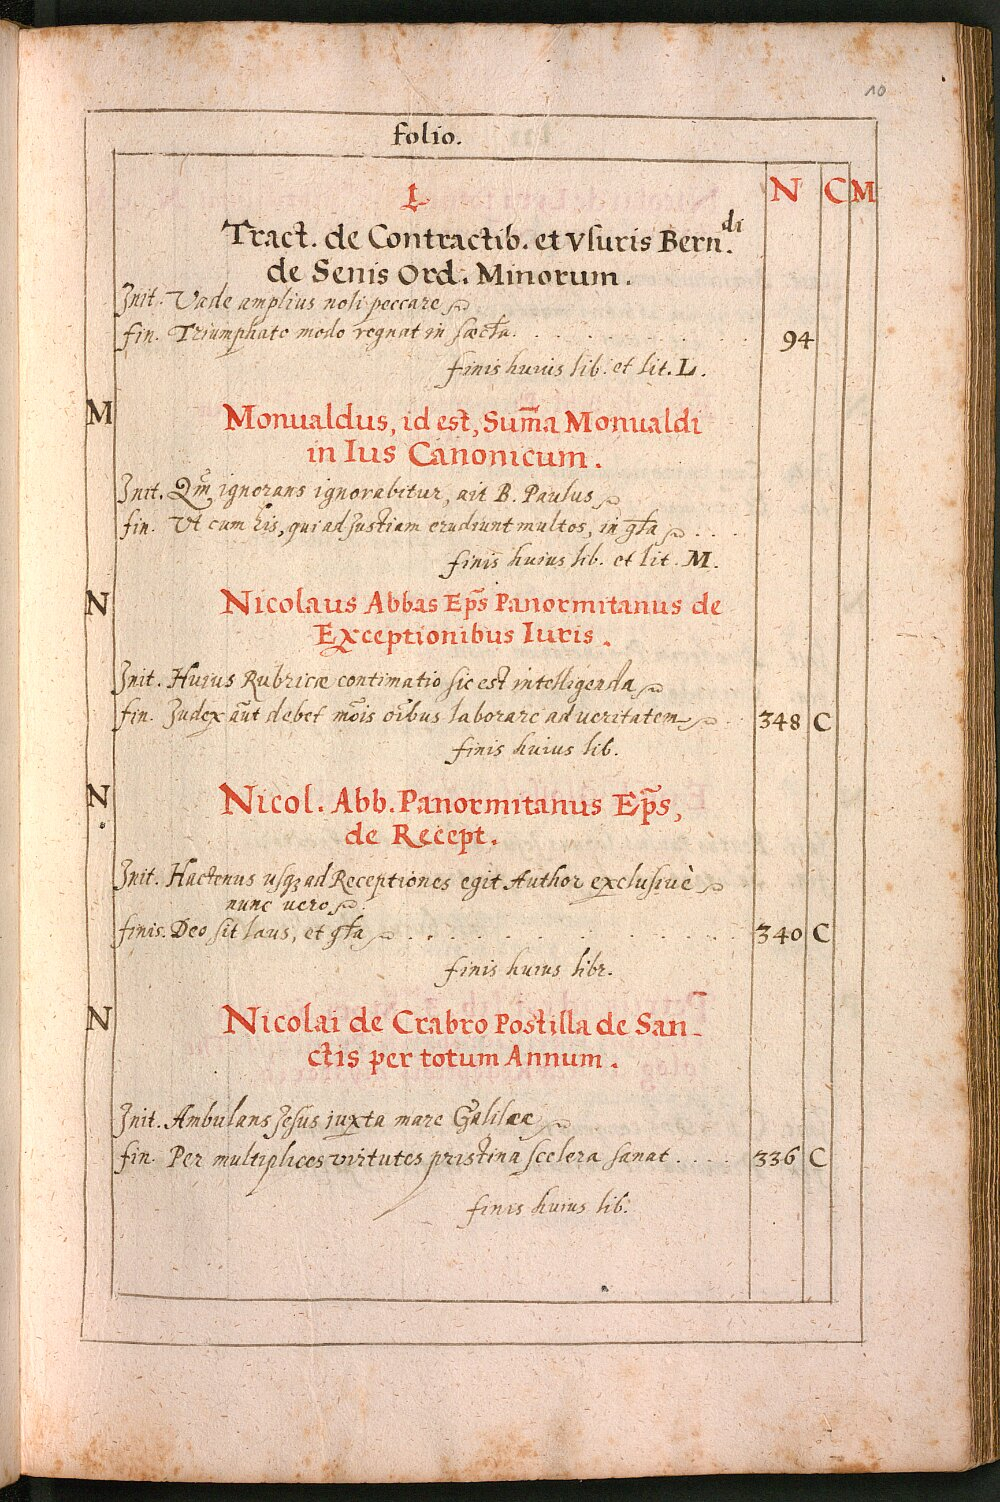 10
folio.
N C M
L
Tract. de Contractib. et Vsuris Bern.di
de Senis Ord. Minorum.
Init. Vade amplius noli peccare
fin. Triumphato modo regnat in sæcła. . . . . . . . 94
finis huius lib. et lit. L.
M Monualdus, id est, Sum̃a Monualdi
in Ius Canonicum.
Init. Qm̃ ignorans ignorabitur, ait B. Paulus
fin. Ut cum his, qui ad Justiam erudiunt multos, in gła . . .
finis huius lib. et lit. M.
N Nicolaus Abbas Ep̃s Panormitanus de
Exceptionibus Iuris.
Init. Huius Rubricæ continuatio sic est intelligenda
fin. Judex aũt debet mõis oĩbus laborare ad veritatem . . 348 C
finis huius lib.
N Nicol. Abb. Panormitanus Ep̃s,
de Recept.
Init. Hactenus usq; ad Receptiones egit Author exclusiuè
nunc vero
finis. Deo sit laus, et gła . . . . . . . . 340 C
finis huius libr.
N Nicolai de Crabro Postilla de San-
ctis per totum Annum.
Init. Ambulans Jesus juxta mare Galilææ
fin. Per multiplices virtutes pristina scelera sanat . . . . 336 C
finis huius lib.